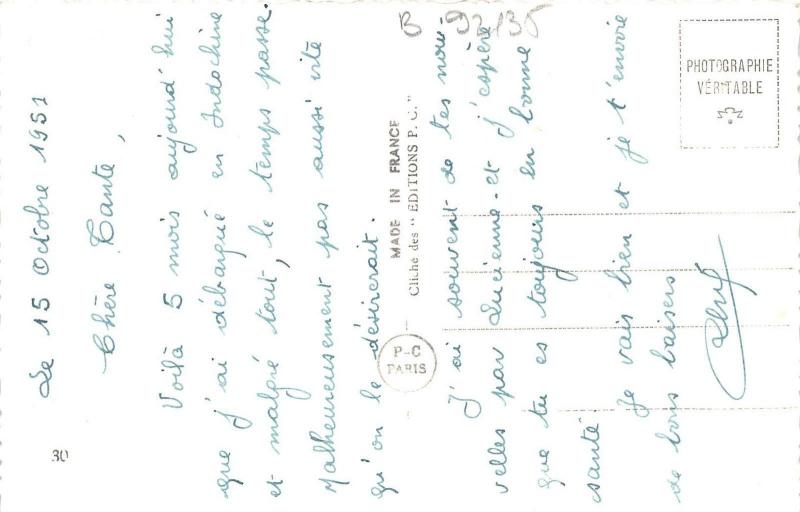 Le 15 Octobre 1951
Chère Tante,
Voilà 5 mois aujourd'hui
que j'ai débarqué en Indochine
et malgré tout, le temps passe.
Malheureusement pas aussi vite
qu'on le désirerait.
30
B 92135
MADE IN FRANCE
Cliché des "EDITIONS P. C."
P-C
PARIS
J'ai souvent de tes nou-
velles par Lucienne - et j'espère
que tu es toujours en bonne
santé
Je vais bien et je t'envoie
de bons baisers
PHOTOGRAPHIE
VÉRITABLE